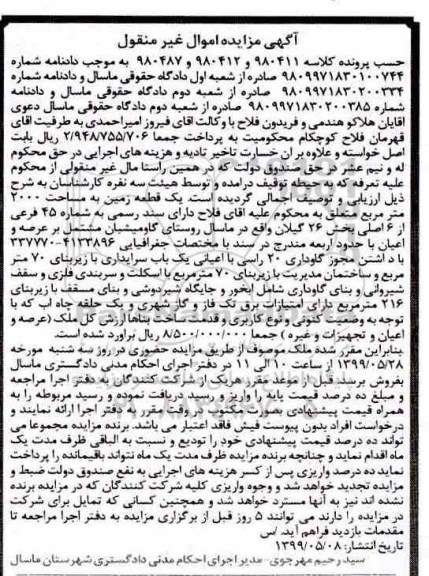 آگهی مزایده اموال غیر منقول
حسب پرونده کلاسه ۹۸۰۴۱۱ و ۹۸۰۴۱۲ و ۹۸۰۴۸۷ به موجب دادنامه شماره
۹۸۰۹۹۷۱۸۳۰۱۰۰۷۴۴ صادره از شعبه اول دادگاه حقوقی ماسال و دادنامه شماره
۹۸۰۹۹۷۱۸۳۰۲۰۰۳۳۴ صادره از شعبه دوم دادگاه حقوقی ماسال و دادنامه
شماره ۹۸۰۹۹۷۱۸۳۰۲۰۰۳۸۵ صادره از شعبه دوم دادگاه حقوقی ماسال دعوی
آقایان هلاکو هندمی و فریدون فلاح با وکالت آقای فیروز امیراحمدی به طرفیت آقای
قهرمان فلاح کوچکام محکومیت به پرداخت جمعا ۲/۹۴۸/۷۵۵/۷۰۶ ریال بابت
اصل خواسته و علاوه بر آن خسارت تاخیر تادیه و هزینه های اجرایی در حق محکوم
له و نیم عشر در حق صندوق دولت که در همین راستا مال غیر منقولی از محکوم
علیه تعرفه که در حیطه توقیف درآمده و توسط هیئت سه نفره کارشناسان به شرح
ذیل ارزیابی و توصیف اجمالی گردیده است. یک قطعه زمین به مساحت ۲۰۰۰
متر مربع متعلق به محکوم علیه آقای فلاح دارای سند رسمی به شماره ۴۵ فرعی
از ۶ اصلی بخش ۲۶ گیلان واقع در ماسال روستای گاومیشبان مشتمل بر عرصه و
اعیان با حدود اربعه مندرج در سند با مختصات جغرافیایی ۴۱۳۳۸۹۶-۳۳۷۷۷۰
با داشتن مجوز گاوداری ۲۰ راسی با اعیانی یک باب سرایداری با زیربنای ۷۰ متر
مربع و ساختمان مدیریت با زیربنای ۷۰ مترمربع با اسکلت و سربندی فلزی و سقف
شیروانی و بنای گاوداری شامل آبخور و جایگاه شیردوشی و بنای مسقف با زیربنای
۲۱۶ مترمربع دارای امتیازات برق تک فاز و گاز شهری و یک حلقه چاه آب که با
توجه به وضعیت کنونی و نوع کاربری و قدمت ساخت بناها ارزش کل ملک (عرصه و
اعیان و تجهیزات و غیره) جمعا ۸/۵۰۰/۰۰۰/۰۰۰ ریال برآورد شده است.
بنابراین مقرر شده ملک موصوف از طریق مزایده حضوری در روز سه شنبه مورخه
۱۳۹۹/۰۵/۲۸ از ساعت ۱۰ الی ۱۱ در دفتر اجرای احکام مدنی دادگستری ماسال
بفروش برسد. قبل از موعد مقرر هریک از شرکت کنندگان به دفتر اجرا مراجعه
و مبلغ ده درصد قیمت پایه را واریز و رسید دریافت نموده و رسید مربوطه را به
همراه قیمت پیشنهادی بصورت مکتوب در وقت مقرر به دفتر اجرا ارائه نمایند و
درخواست افراد بدون پیوست فیش فاقد اعتبار می باشد. برنده مزایده مجموعا می
تواند ده درصد قیمت پیشنهادی خود را تودیع و نسبت به الباقی ظرف مدت یک
ماه اقدام نماید و چنانچه برنده مزایده ظرف مدت یک ماه نتواند باقیمانده را پرداخت
نماید ده درصد واریزی پس از کسر هزینه های اجرایی به نفع صندوق دولت ضبط و
مزایده تجدید خواهد شد و وجوه واریزی کلیه شرکت کنندگان که در مزایده برنده
نشده اند نیز به آنها مسترد خواهد شد و همچنین کسانی که تمایل برای شرکت
در مزایده را دارند می توانند ۵ روز قبل از برگزاری مزایده به دفتر اجرا مراجعه تا
مقدمات بازدید فراهم آید. /س
تاریخ انتشار: ۱۳۹۹/۰۵/۰۸
سید رحیم مهرجوی - مدیر اجرای احکام مدنی دادگستری شهرستان ماسال